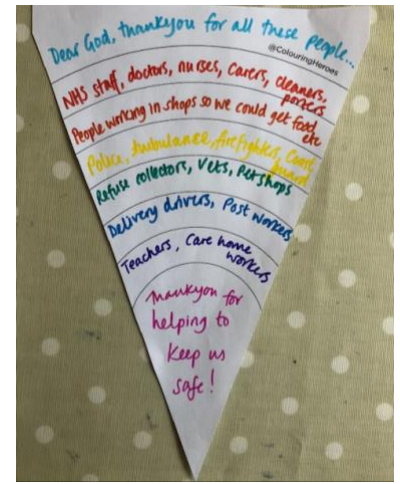 Dear God, thankyou for all these people...
@ColouringHeroes
NHS staff, doctors, nurses, Carers, cleaners,
porters
People working in shops so we could get food
etc
Police, Ambulance, firefighters, Coast
guard
Refuse collectors, Vets, Petshops
Delivery drivers, Post workers
Teachers, Care home
workers
Thankyou for
helping to
keep us
safe!